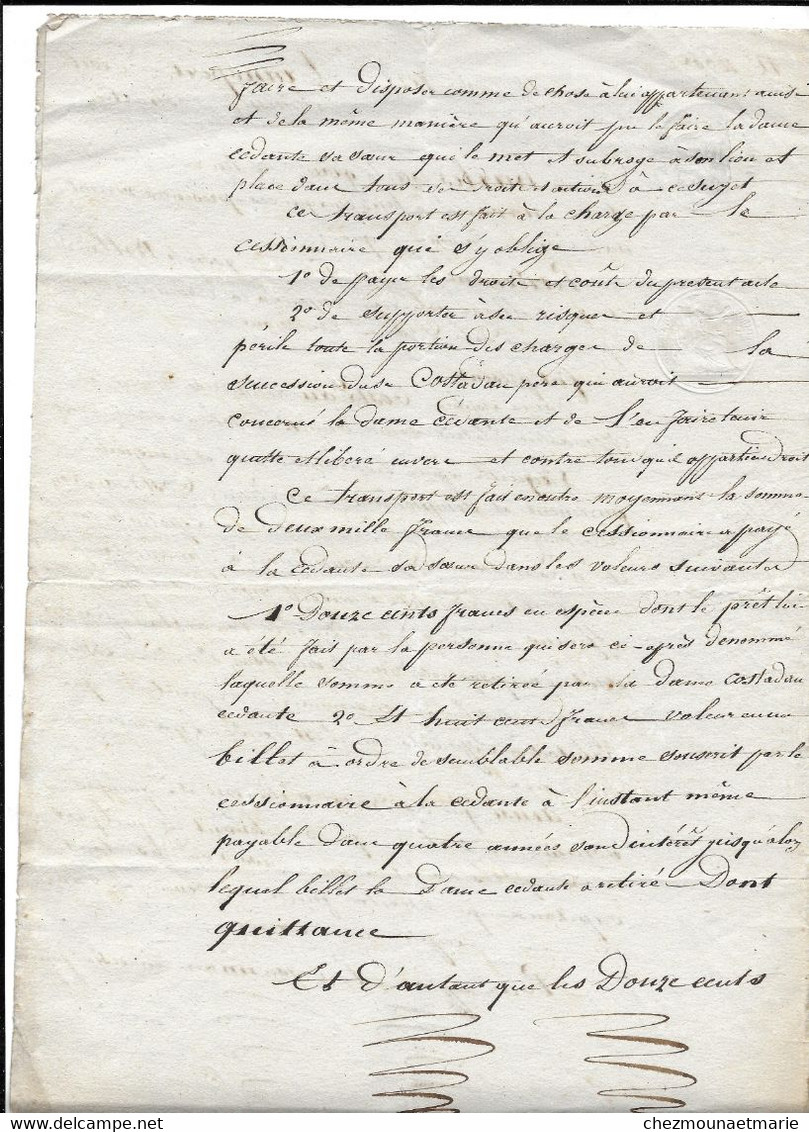 faire et disposer comme de chose à lui appartenant
et de la même manière qu'auroit pu le faire la dame
cédante sa sœur qui le met et subroge à son lieu et
place dans tous ses droits et actions à ce sujet
ce transport est fait à la charge par le
cessionnaire qui s'y oblige
1º de payer les droits et coûts du present acte
2º de supporter à ses risques et
périls toute la portion des charges de la
succession du Costadau pere qui auroit
concerné la dame cédante et de l'en faire tenir
quitte et libéré envers et contre tous qu'il appartiendroit
Ce transport est fait en outre moyennant la somme
de deux mille francs que le cessionnaire a payé
à la cédante sa sœur dans les valeurs suivantes
1º Douze cents francs en espèces dont le prêt lui
a été fait par la personne qui sera ci-après dénommé
laquelle somme a été retirée par la dame Costadau
cédante 2º Et huit cents francs valeur en un
billet à ordre de semblable somme souscrit par le
cessionnaire à la cédante à l'instant même
payable dans quatre années sans intérêt jusqu'alors
lequel billet la Dame cédante a retiré Dont
quittance
Et d'autant que les Douze cents
chezmounaetmarie